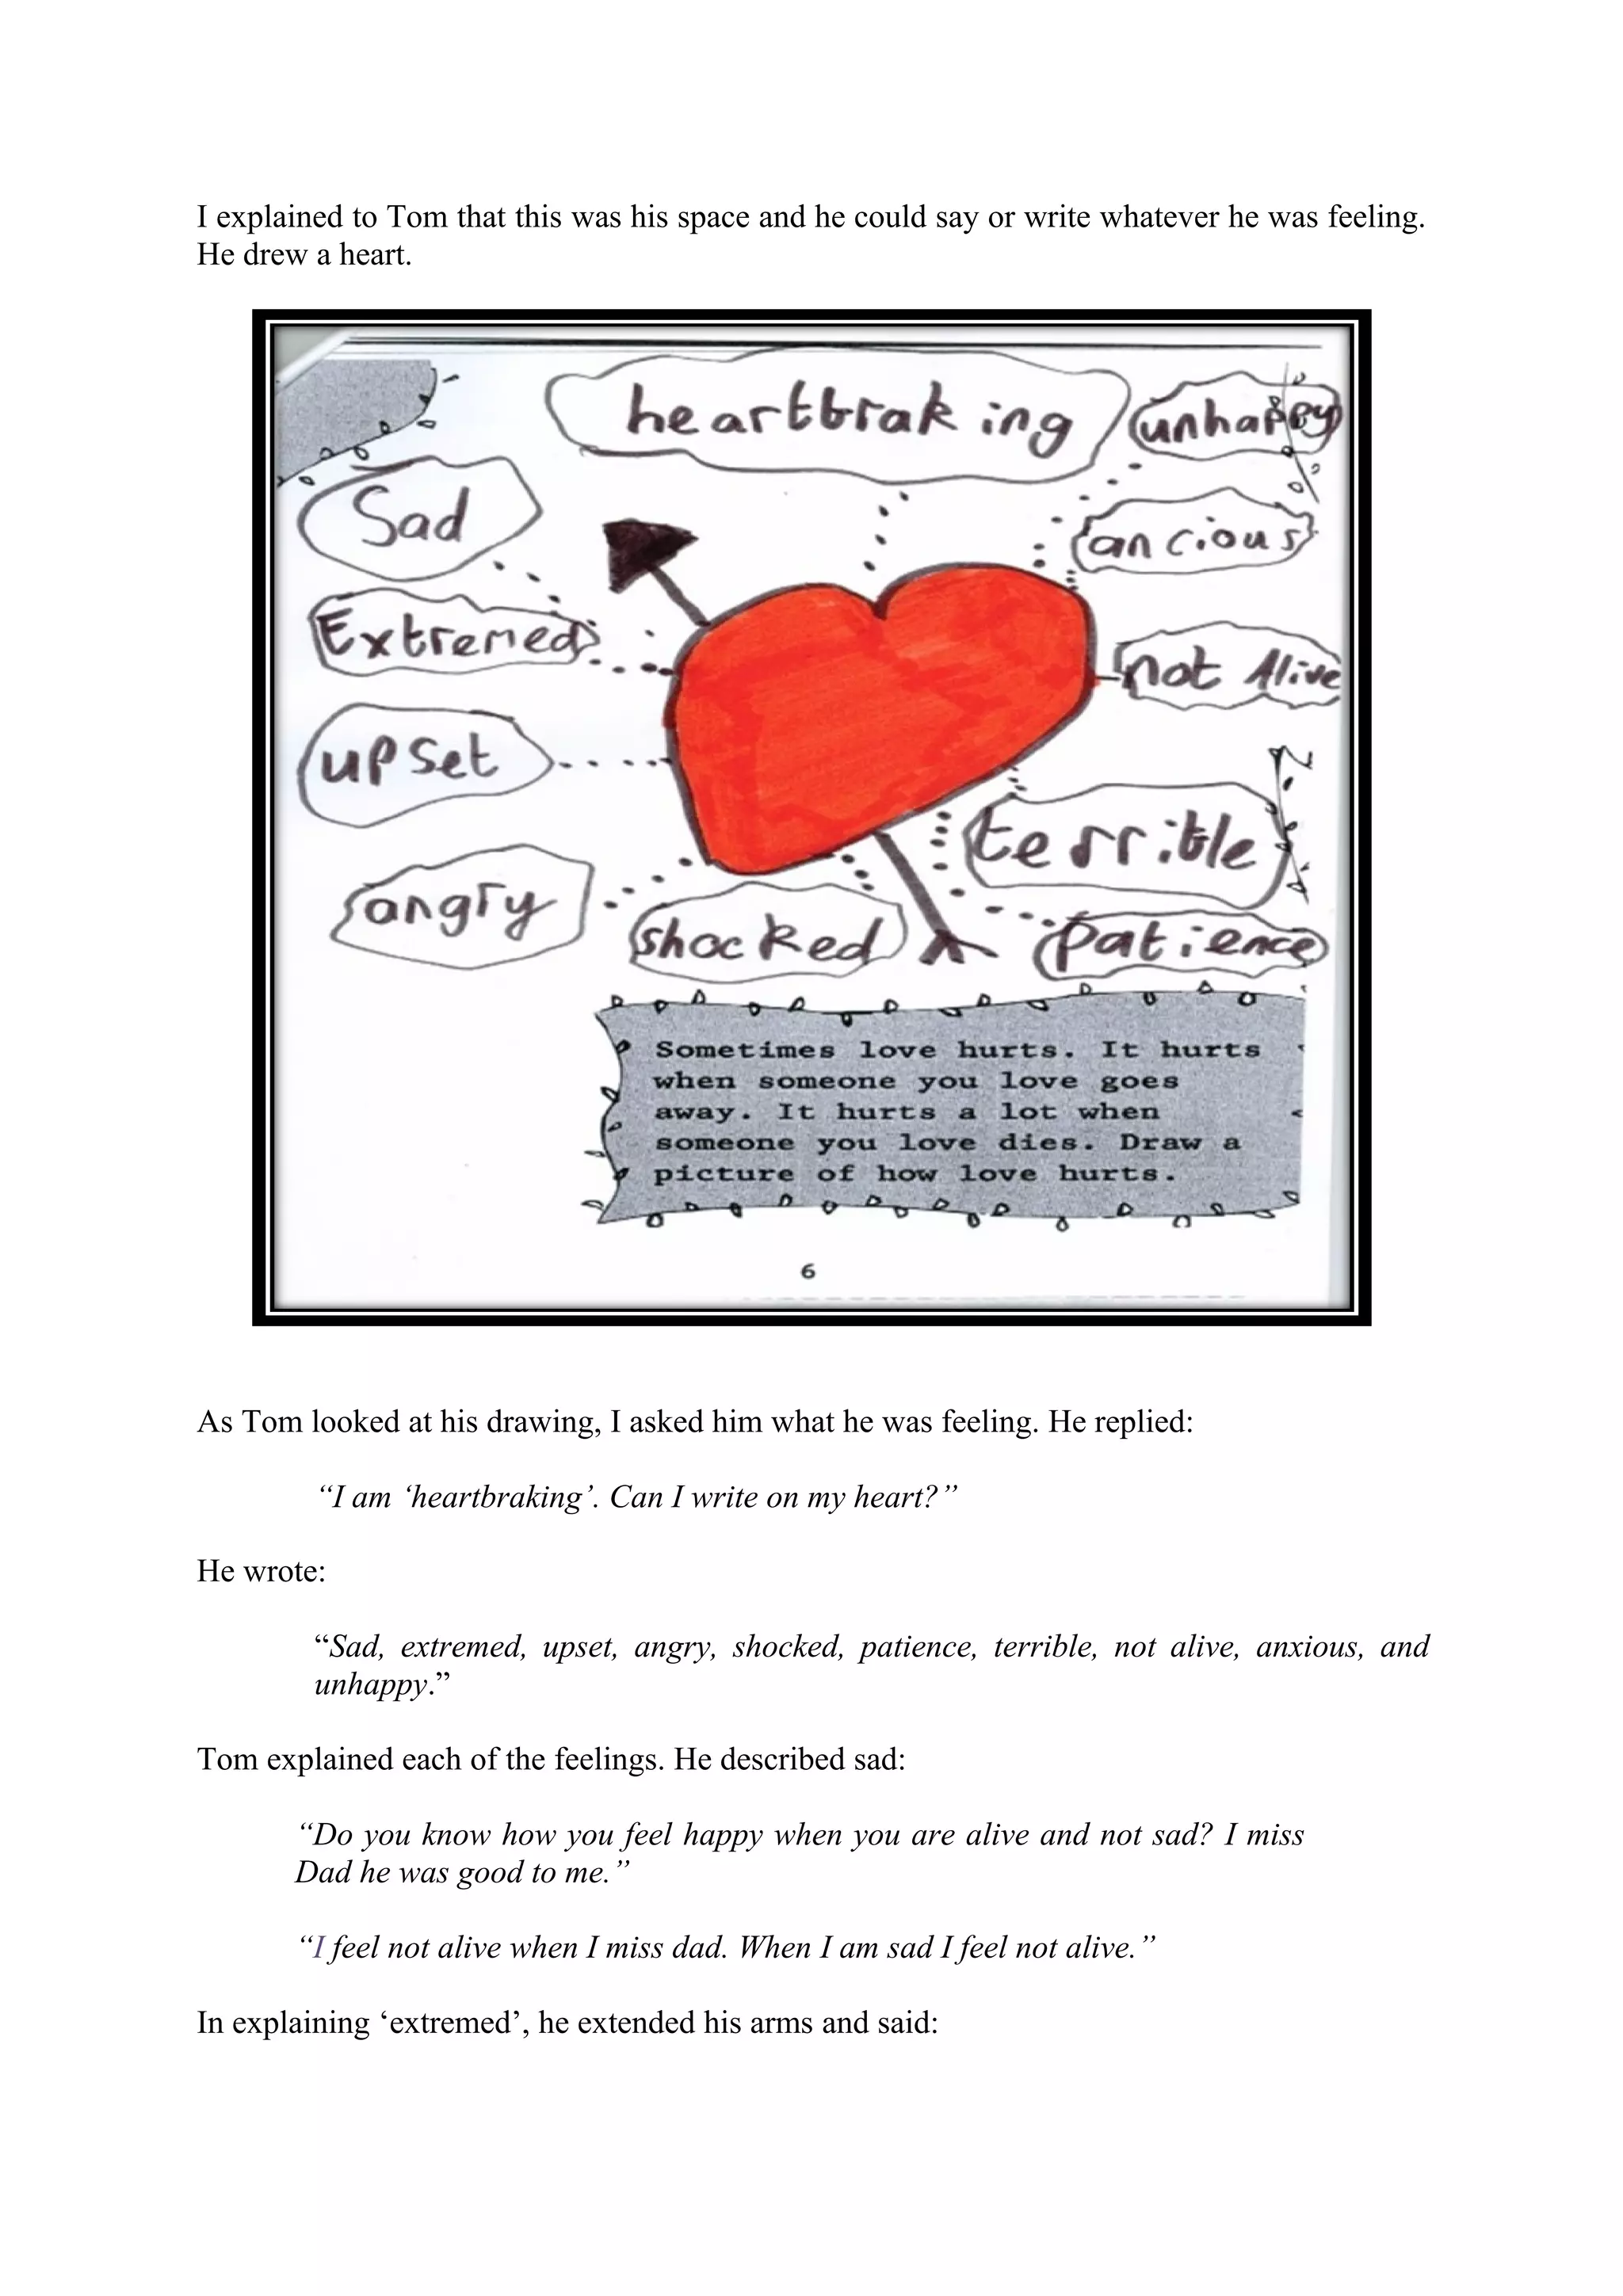 I explained to Tom that this was his space and he could say or write whatever he was feeling.
He drew a heart.
heartbraking
unhappy
Sad
ancious
Extremed
not Alive
upset
terrible
angry
shocked
patience
Sometimes love hurts. It hurts
when someone you love goes
away. It hurts a lot when
someone you love dies. Draw a
picture of how love hurts.
6
As Tom looked at his drawing, I asked him what he was feeling. He replied:
“I am ‘heartbraking’. Can I write on my heart?”
He wrote:
“Sad, extremed, upset, angry, shocked, patience, terrible, not alive, anxious, and
unhappy.”
Tom explained each of the feelings. He described sad:
“Do you know how you feel happy when you are alive and not sad? I miss
Dad he was good to me.”
“I feel not alive when I miss dad. When I am sad I feel not alive.”
In explaining ‘extremed’, he extended his arms and said: